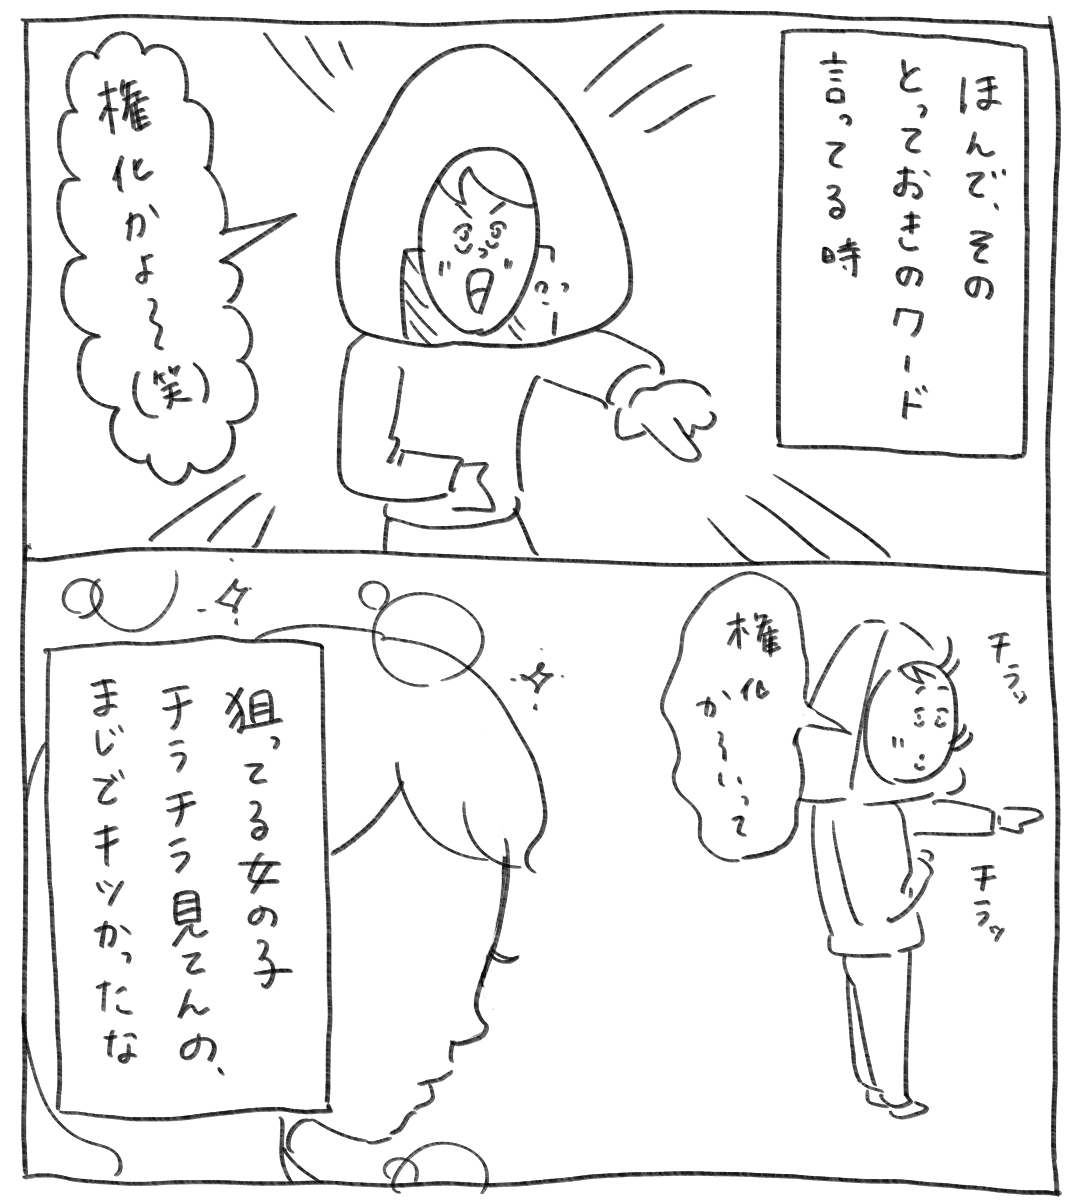 ほんで、その
とっておきのワード
言ってる時
権化かよ〜(笑)
権化
か〜いって
チラッ
チラッ
狙ってる女の子
チラチラ見てんの、
まじでキツかったな